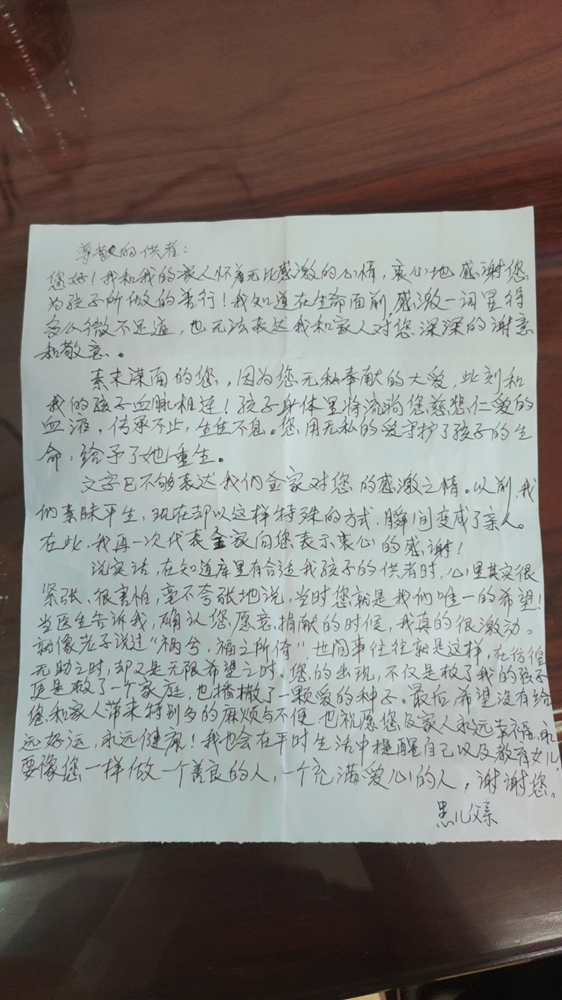 尊敬的供者:
您好!我和我的家人怀着无比感激的心情,衷心地感谢您
为孩子所做的善行!我知道在生命面前,感激一词显得
多么微不足道,也无法表达我和家人对您深深的谢意
和敬意。
素未谋面的您,因为您无私奉献的大爱,此刻和
我的孩子血脉相连!孩子身体里将流淌您慈悲仁爱的
血液,传承不止,生生不息。您用无私的爱守护了孩子的生
命,给予了她重生。
文字已不够表达我们全家对您的感激之情。以前,我
们素昧平生,现在却以这样特殊的方式,瞬间变成了亲人。
在此,我再一次代表全家向您表示衷心的感谢!
说实话,在知道库里有合适我孩子的供者时,心里其实很
紧张,很害怕,毫不夸张地说,当时您就是我们唯一的希望!
当医生告诉我,确认您愿意捐献的时候,我真的很激动。
就像老子说过“祸兮,福之所倚”世间事往往就是这样,在彷徨
无助之时,却又是无限希望之时。您的出现,不仅是救了我的孩子
更是救了一个家庭,也播撒了一颗爱的种子。最后希望没有给
您和家人带来特别多的麻烦与不便,也祝愿您及家人永远幸福,永
远好运,永远健康!我也会在平时生活中提醒自己以及教育女儿,
要像您一样做一个善良的人,一个充满爱心的人,谢谢您。
患儿父亲